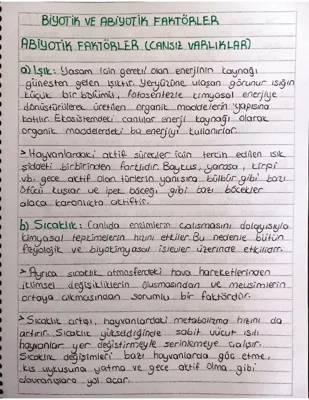 BİYOTİK VE ABİYOTİK FAKTÖRLER
ABİYOTİK FAKTÖRLER (CANSIZ VARLIKLAR)
a) Işık: Yaşam için gerekli olan enerjinin kaynağı
güneşten gelen ışıktır. Yeryüzüne ulaşan görünür ışığın
küçük bir bölümü, fotosentezle kimyasal enerjiye
dönüştürülerek üretilen organik maddelerin yapısına
katılır. Ekosistemdeki canlılar enerji kaynağı olarak
organik maddelerdeki bu enerjiyi kullanırlar.
> Hayvanlardaki aktif süreçler için tercih edilen ışık
şiddeti birbirinden farklıdır. Baykuş, yarasa, kirpi
vb. gece aktif olan türlerin yanısıra bülbül gibi bazı
ötücü kuşlar ve ipek böceği gibi bazı böcekler
alaca karanlıkta aktiftir.
b) Sıcaklık: Canlıda enzimlerin çalışmasını dolayısıyla
kimyasal tepkimelerin hızını etkiler. Bu nedenle bütün
fizyolojik ve biyokimyasal işlevler üzerinde etkilidir.
> Ayrıca sıcaklık atmosferdeki hava hareketlerinden
iklimsel değişikliklerin oluşmasından ve mevsimlerin
ortaya çıkmasından sorumlu bir faktördür.
> Sıcaklık artışı, hayvanlardaki metabolizma hızını da
artırır. Sıcaklık yükseldiğinde sabit vücut ısılı
hayvanlar yer değiştirmeyle serinlemeye çalışır.
Sıcaklık değişimleri bazı hayvanlarda göç etme,
kış uykusuna yatma ve gece aktif olma gibi
davranışlara yol açar.